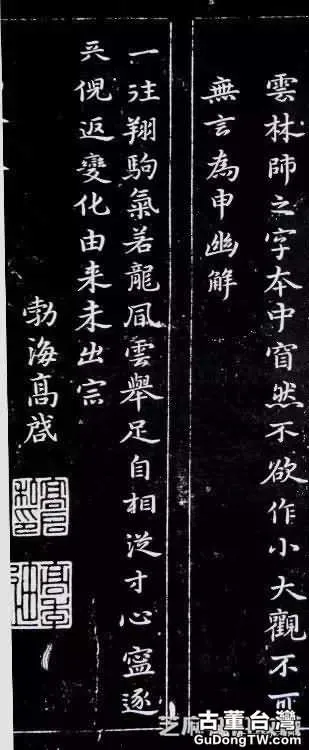 雲林師之字本中窅然不欲作小大觀不可
無言為申幽解
一注翔駒氣若龍凮雲舉足自相從才心寍逐
兲倪返變化由来未出宗
勃海高啓
古董台灣
GuDongTW.com